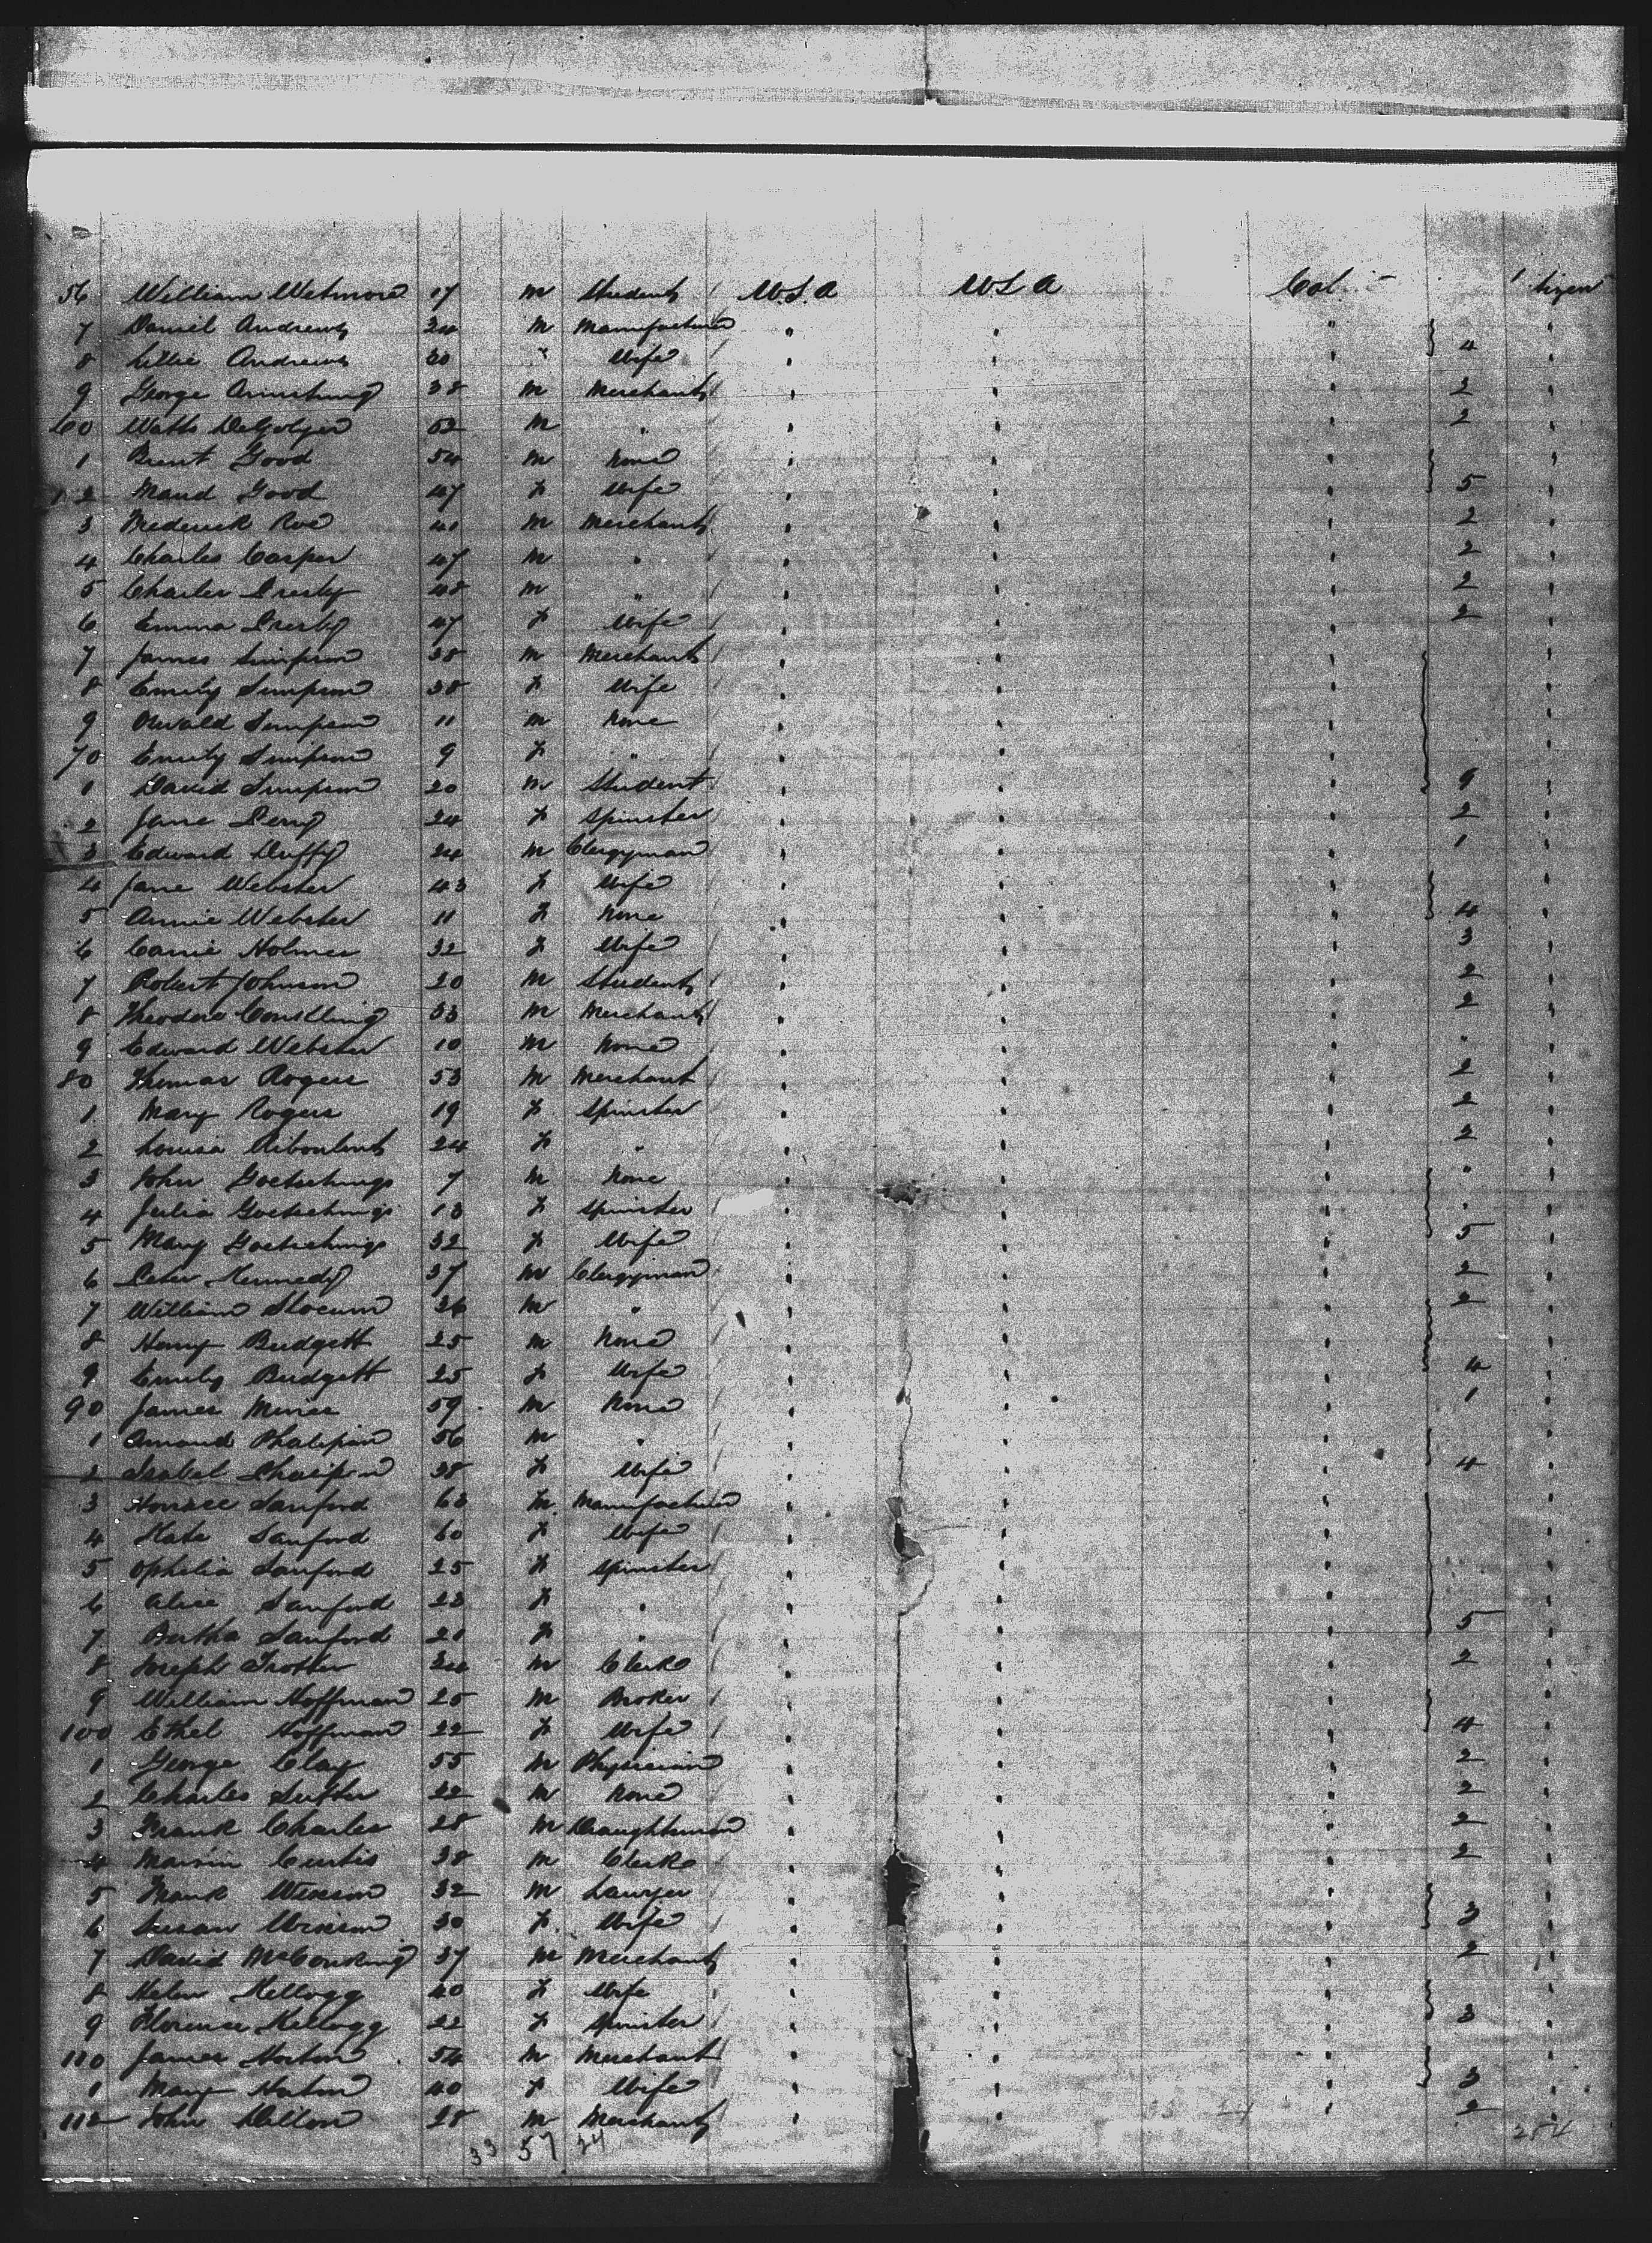 56 William Wetmore 17 m Student U.S.A U S A Cab. Citizen
7 Daniel Andrews 24 m Manufacturer " " " "
8 Lillie Andrews 20 " Wife " " " 4 "
9 George Armstrong 38 m Merchant " " " 2 "
60 Watts DeGolyer 52 m " " " " 2 "
1 Brent Good 54 m None " " " "
2 Maud Good 47 f Wife " " " 5 "
3 Frederick Roe 41 m Merchant " " " 2 "
4 Charles Casper 47 m " " " " 2 "
5 Charles Presby 48 m " " " " 2 "
6 Emma Presby 47 f Wife " " " 2 "
7 James Simpson 38 m Merchant " " " "
8 Emily Simpson 38 f Wife " " " "
9 Oswald Simpson 11 m None " " " "
70 Emily Simpson 9 f " " " " "
1 David Simpson 20 m Student " " " 9 "
2 Jane Perry 24 f Spinster " " " 2 "
3 Edward Duffy 24 m Clergyman " " " 1 "
4 Jane Webster 43 f Wife " " " "
5 Annie Webster 11 f None " " " 4 "
6 Carrie Holmes 32 f Wife " " " 3 "
7 Robert Johnson 20 m Student " " " 2 "
8 Theodore Conkling 33 m Merchant " " " 2 "
9 Edward Webster 10 m None " " " " "
80 Thomas Rogers 53 m Merchant " " " 2 "
1 Mary Rogers 19 f Spinster " " " 2 "
2 Louisa 24 f " " " " 2 "
3 John 7 m None " " " " "
4 Julia 13 f Spinster " " " " "
5 Mary 32 f Wife " " " 5 "
6 Peter Kennedy 37 m Clergyman " " " 2 "
7 William Slocum 36 m " " " " 2 "
8 Harry Budgett 25 m None " " " "
9 Emily Budgett 25 f Wife " " " 4 "
90 James 59 m None " " " 1 "
1 56 m " " " " "
2 Isabel 38 f Wife " " " 4 "
3 Horace Sanford 63 m Manufacturer " " " "
4 Kate Sanford 60 f Wife " " " "
5 Ophelia Sanford 25 f Spinster " " " "
6 Alice Sanford 23 f " " " " "
7 Bertha Sanford 21 f " " " " 5 "
8 Joseph Trotter 24 m Clerk " " " 2 "
9 William Hoffman 25 m Broker " " " "
100 Ethel Hoffman 22 f Wife " " " 4 "
1 George Clay 55 m Physician " " " 2 "
2 Charles Sutter 22 m None " " " 2 "
3 Frank Charles 28 m Draughtsman " " " 2 "
4 Marvin Curtis 38 m Clerk " " " 2 "
5 Frank 32 m Lawyer " " " "
6 Susan 30 f Wife " " " 3 "
7 David 37 m Merchant " " " 2 "
8 Helen Kellogg 40 f Wife " " " "
9 Florence Kellogg 22 f Spinster " " " 3 "
110 James Horton 54 m Merchant " " " "
1 Mary Horton 40 f Wife " " " 3 "
112 John Dillon 28 m Merchant " " " 2 "
33 57 24 254